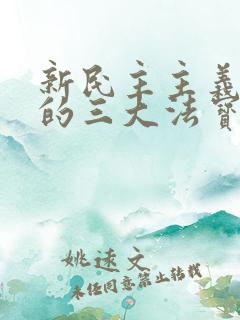 新民主主义
的三大法宝
姚逑文
未经同意禁止转载